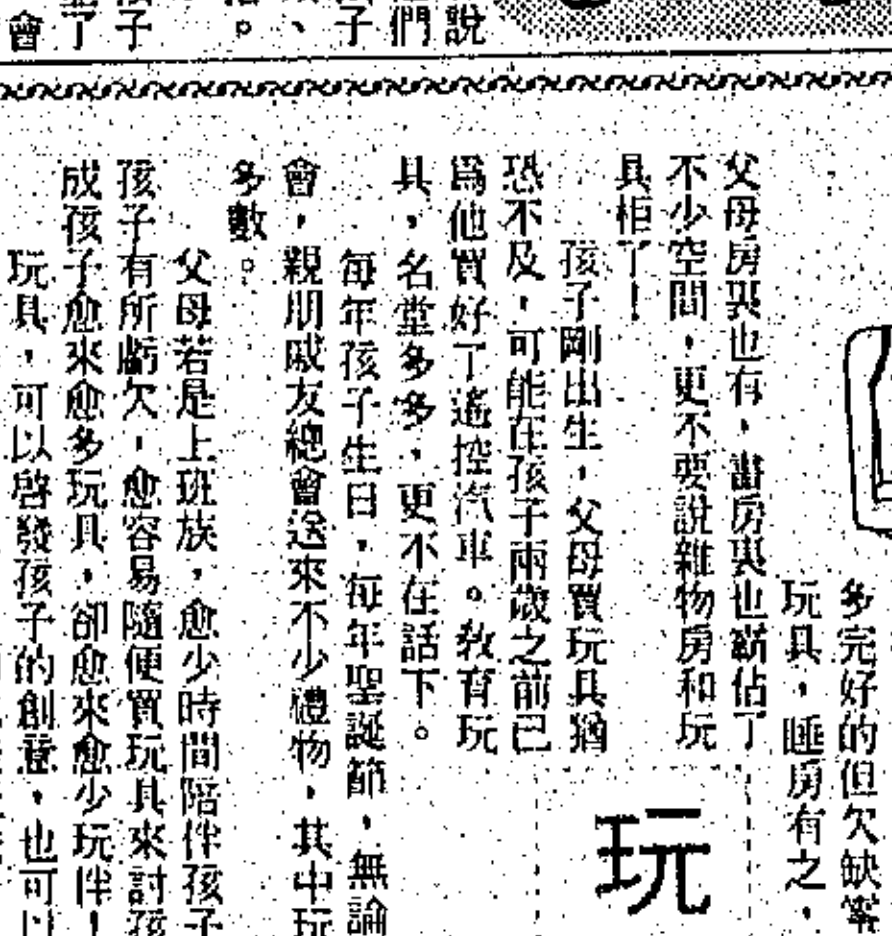 說
們
子
、
。
子
了
會
多完好的但欠缺
玩具，睡房有之，
父母房裏也有，書房裏也霸佔了
不少空間，更不要說雜物房和玩
具柜了！
玩
孩子剛出生，父母買玩具猶
恐不及，可能在孩子兩歲之前已
爲他買好了遙控汽車。教育玩
具，名堂多多，更不在話下。
每年孩子生日，每年聖誕節，無論
會，親朋戚友總會送來不少禮物，其中玩
多數。
父母若是上班族，愈少時間陪伴孩子
孩子有所虧欠，愈容易隨便買玩具來討孩
成孩子愈來愈多玩具，卻愈來愈少玩伴！
玩具，可以啓發孩子的創意，也可以